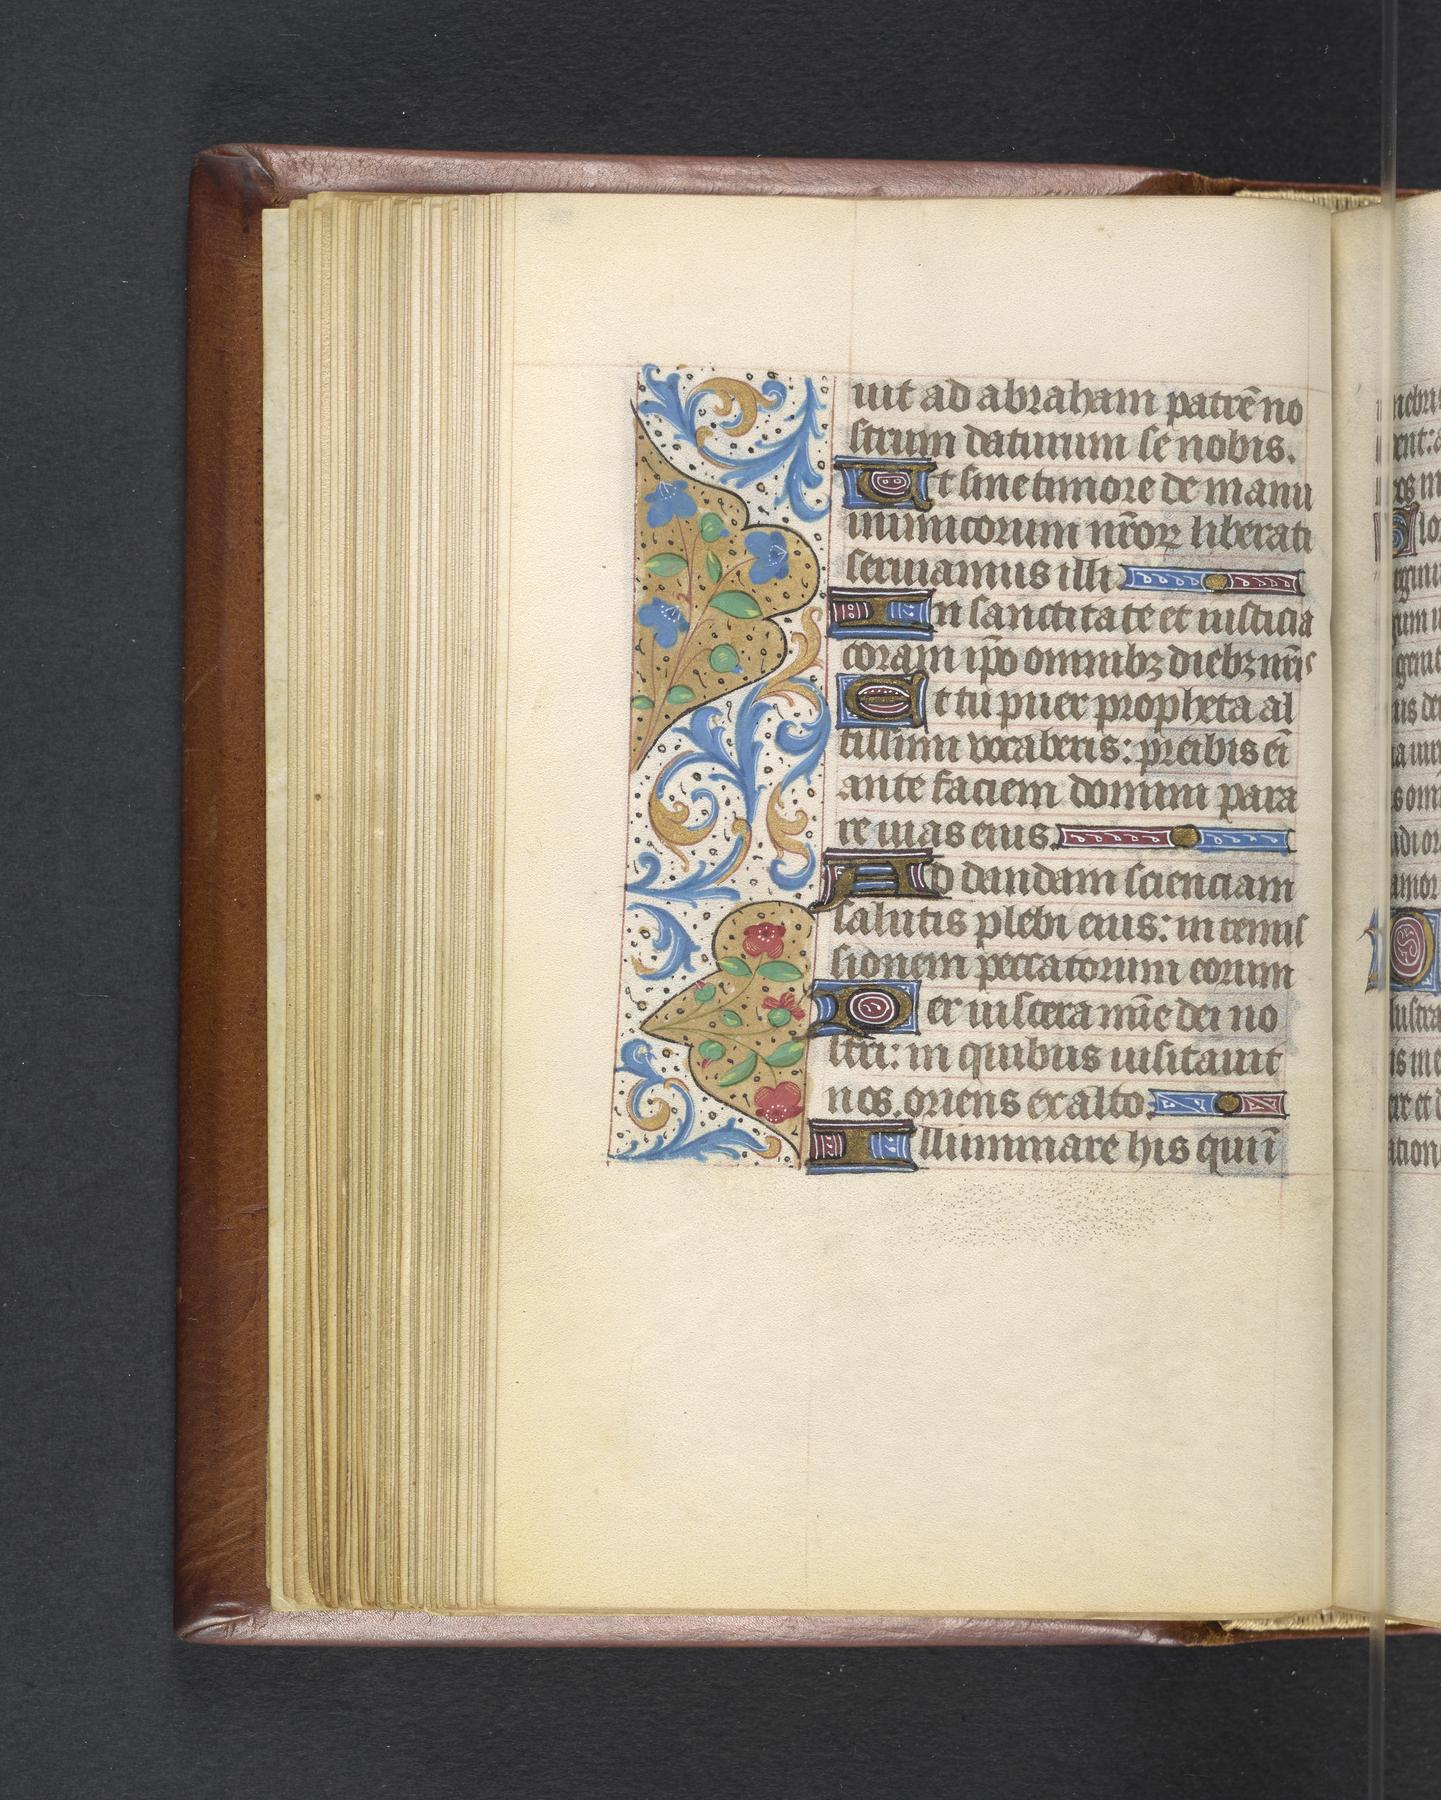 uit ad abraham patrē no
strum daturum se nobis.
Ut sine timore de manu
inimicorum nr̄oꝝ liberati
seruiamus illi
In sanctitate et iusticia
coram ip̄o omnibꝫ diebꝫ nr̄is
Et tu puer propheta al
tissimi vocaberis: preibis eī
ante faciem domini para
re uias eius.
Ad dandam scienciam
salutis plebi eius: in remis
sionem peccatorum eorum
Per uiscera mīe dei no
stri: in quibus uisitauit
nos. oriens ex alto.
Illuminare his qui ī